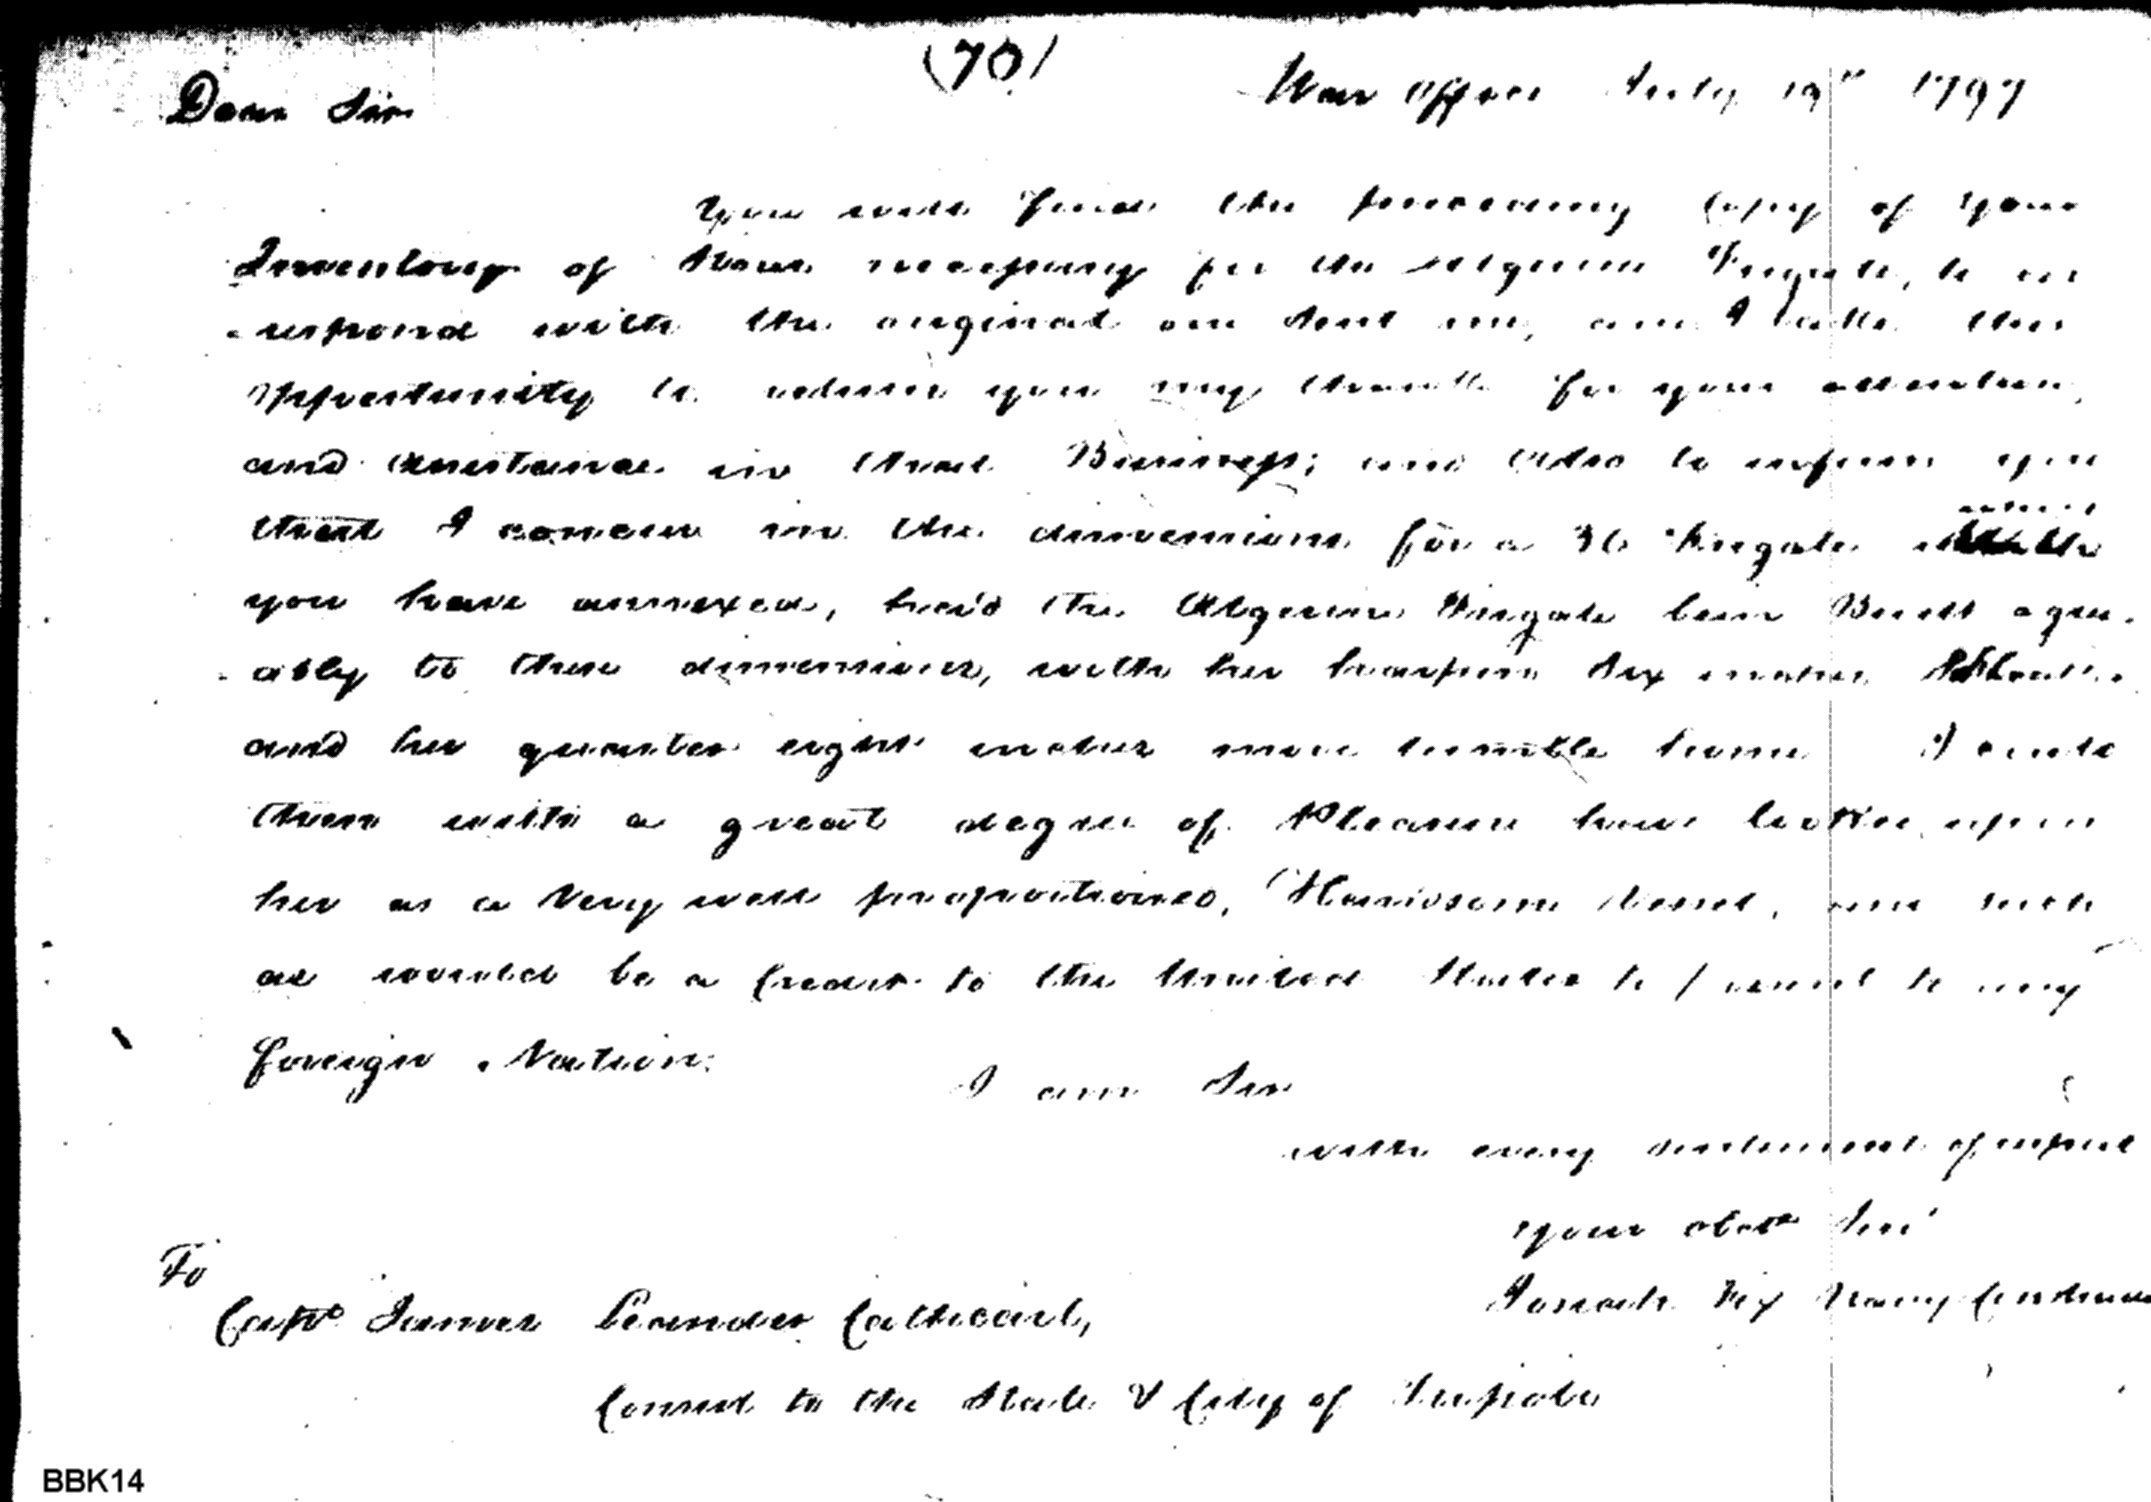 (70)
War Office July 19th 1797
Dear Sir
You will find the preceeding Copy of your
Inventory of Stores necessary for the Algerine Frigate, to cor
-respond with the original one sent me, and I take this
oppertunity to return you my thanks for your attention,
and assistance in that Business; and also to inform you
that I concur in the dimensions for a 36 Frigate which
you have annexed, had the Algerine Frigate been Built agree-
-ably to these dimensions, with her harpins Six inches
and her quarter eight inches more tumble home I could
then with a great degree of Pleasure have looked upon
her as a Very well proportioned, Handsome Vessel, and such
as would be a Credit to the United States to present to any
foreign Nation.
I am Sir
with every sentiment of respect
your obdt Servt
Josiah Fox Navy Constructor
To
Captn James Leander Cathcart,
Consul to the State & City of Tripoli
BBK14